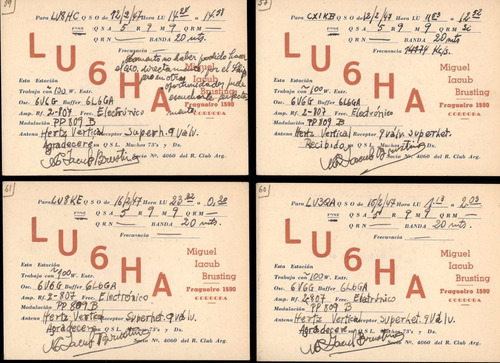 59
Para LU8HC QSO de 22/2/47 Hora LU 14.28 a 14.58
FONE QSA 5 R 9 M 9 QRM
QRN BANDA 20 mts.
Frecuencia
LU6HA
Miguel
Iacub
Brusting
Fragueiro 1590
CORDOBA
Esta Estación
Trabaja con 100 W. Entr.
Osc. 6V6G Buffer 6L6GA
Amp. Rf. 2-807 Frec. Electrónico
Modulación PP 809 B
Antena Hertz Vertical Receptor Superh. 9 valv.
Agradeceré QSL. Muchos 73's y Dx.
Socio Nº. 4060 del R. Club Arg.
57
Para CX1KB QSO de 12/2/47 Hora LU a 12.52
FONE QSA 5 R 9 M 9 QRM
QRN BANDA 20 mts.
Frecuencia Kc/s.
LU6HA
Miguel
Iacub
Brusting
Fragueiro 1590
CORDOBA
Esta Estación
Trabaja con ~100 W. Entr.
Osc. 6V6G Buffer 6L6GA
Amp. Rf. 2-807 Frec. Electrónico
Modulación PP 809 B
Antena Hertz Vertical Receptor 9 valv. superhet.
Recibida QSL. Muchos 73's y Dx.
Socio Nº. 4060 del R. Club Arg.
61
Para LU8KE QSO de 16/2/47 Hora LU 23 a 0,30
FONE QSA 5 R 9 M 9 QRM
QRN BANDA 20 mts.
Frecuencia
LU6HA
Miguel
Iacub
Brusting
Fragueiro 1590
CORDOBA
Esta Estación
Trabaja con ~100 W. Entr.
Osc. 6V6G Buffer 6L6GA
Amp. Rf. 2-807 Frec. Electrónico
Modulación PP 809 B
Antena Hertz Vertical Receptor Superhet. 9 valv.
Agradeceré QSL. Muchos 73's y Dx.
Socio Nº. 4060 del R. Club Arg.
60
Para LU3QA QSO de 15/2/47 Hora LU a 2.03
FONE QSA 5 R 9 M 9 QRM
QRN BANDA 20 mts.
Frecuencia
LU6HA
Miguel
Iacub
Brusting
Fragueiro 1590
CORDOBA
Esta Estación
Trabaja con ~100 W. Entr.
Osc. 6V6G Buffer 6L6GA
Amp. Rf. 2-807 Frec. Eletrónico
Modulación PP 809 B
Antena Hertz Vertical Receptor Superhet. 9 valv.
Agradeceré QSL. Muchos 73's y Dx.
Socio Nº. 4060 del R. Club Arg.